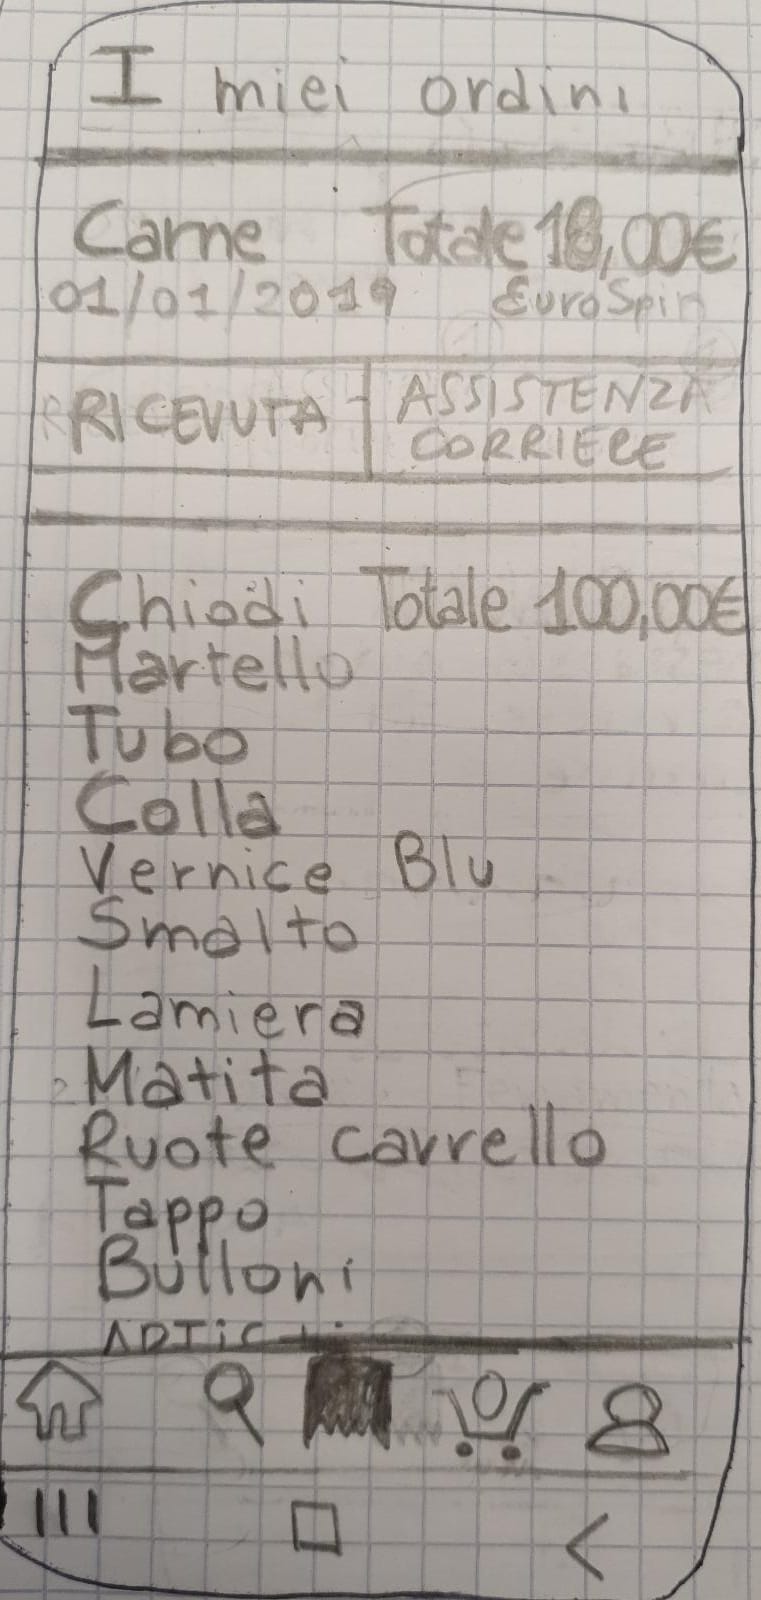 I miei ordini
Carne Totale 18,00€
01/01/2019 EuroSpin
RICEVUTA ASSISTENZA
CORRIERE
Chiodi Totale 100,00€
Martello
Tubo
Colla
Vernice Blu
Smalto
Lamiera
Matita
Ruote carrello
Tappo
Bulloni